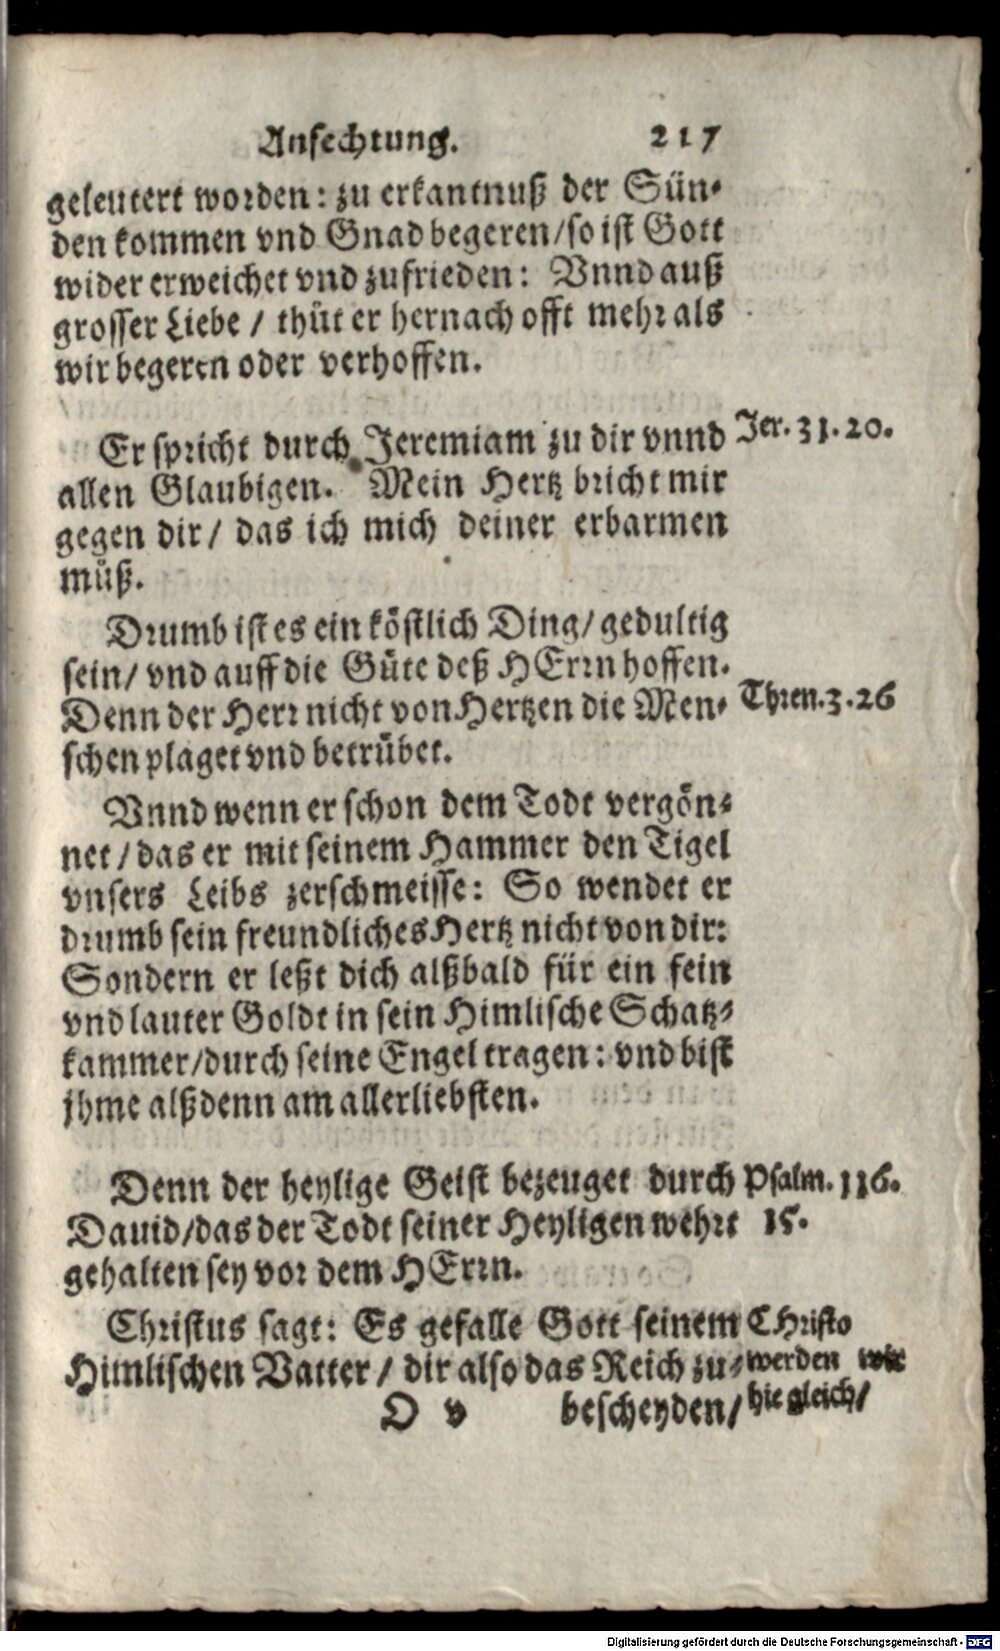 Anfechtung. 217
geleutert worden: zu erkantnuß der Sün-
den kommen vnd Gnad begeren/so ist Gott
wider erweichet vnd zufrieden: Vnnd auß
grosser Liebe / thüt er hernach offt mehr als
wir begeren oder verhoffen.
Er spricht durch Jeremiam zu dir vnnd Jer. 31. 20.
allen Glaubigen. Mein Hertz bricht mir
gegen dir/ das ich mich deiner erbarmen
müß.
Drumb ist es ein köstlich Ding/ gedultig
sein/ vnd auff die Güte deß HErrn hoffen.
Denn der Herr nicht von Hertzen die Men- Thren. 3. 26
schen plaget vnd betrübet.
Vnnd wenn er schon dem Todt vergön-
net / das er mit seinem Hammer den Tigel
vnsers Leibs zerschmeisse: So wendet er
drumb sein freundliches Hertz nicht von dir:
Sondern er leßt dich alßbald für ein fein
vnd lauter Goldt in sein Himlische Schatz-
kammer/durch seine Engel tragen: vnd bist
jhme alßdenn am allerliebsten.
Denn der heylige Geist bezeuget durch Psalm. 116.
Dauid/das der Todt seiner Heyligen wehrt 15.
gehalten sey vor dem HErrn.
Christus sagt: Es gefalle Gott seinem CHristo
Himlischen Vatter / dir also das Reich zu- werden wir
O v bescheyden/ hie gleich/
Digitalisierung gefördert durch die Deutsche Forschungsgemeinschaft - DFG